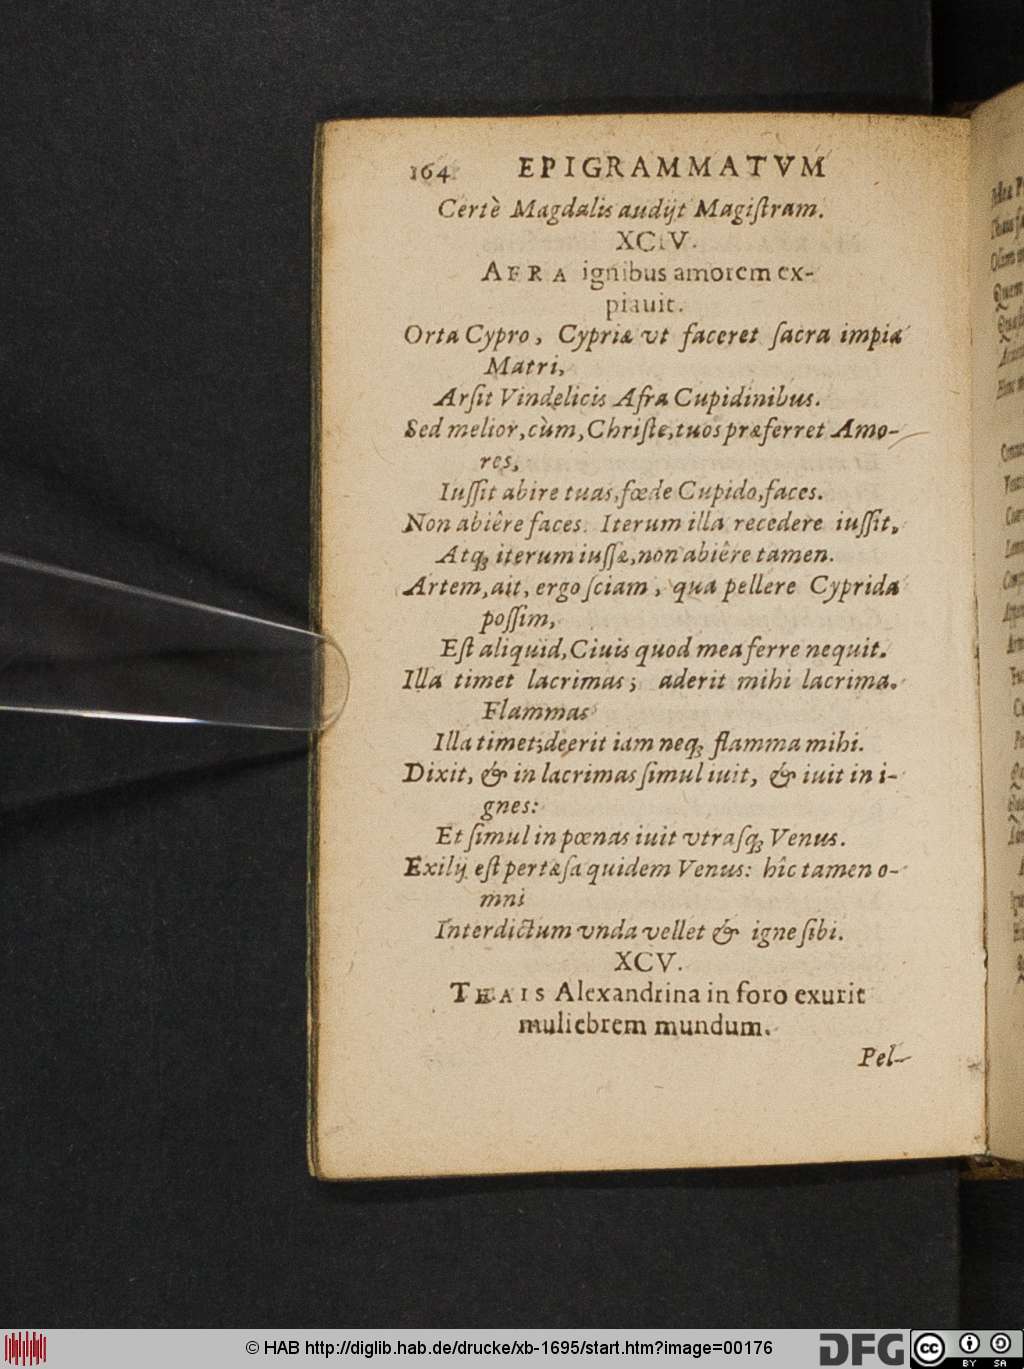 164 EPIGRAMMATVM
Certè Magdalis audijt Magiſtram.
XCIV.
AFRA ignibus amorem ex-
piauit.
Orta Cypro, Cypriæ vt faceret ſacra impia
Matri,
Arſit Vindelicis Afra Cupidinibus.
Sed melior, cùm, Chriſte, tuos præferret Amo-
res,
Iuſſit abire tuas, fœde Cupido, faces.
Non abiêre faces. Iterum illa recedere iuſſit,
Atqꝫ iterum iuſſæ, non abiêre tamen.
Artem, ait, ergo ſciam, qua pellere Cyprida
poſſim,
Eſt aliquid, Ciuis quod mea ferre nequit.
Illa timet lacrimas; aderit mihi lacrima.
Flammas
Illa timet; deerit iam neqꝫ flamma mihi.
Dixit, & in lacrimas ſimul iuit, & iuit in i-
gnes:
Et ſimul in pœnas iuit vtraſqꝫ Venus.
Exilij eſt pertæſa quidem Venus: hîc tamen o-
mni
Interdictum vnda vellet & igne ſibi.
XCV.
THAIS Alexandrina in foro exurit
muliebrem mundum.
Pel-
© HAB http://diglib.hab.de/drucke/xb-1695/start.htm?image=00176
DFG
cc
BY SA